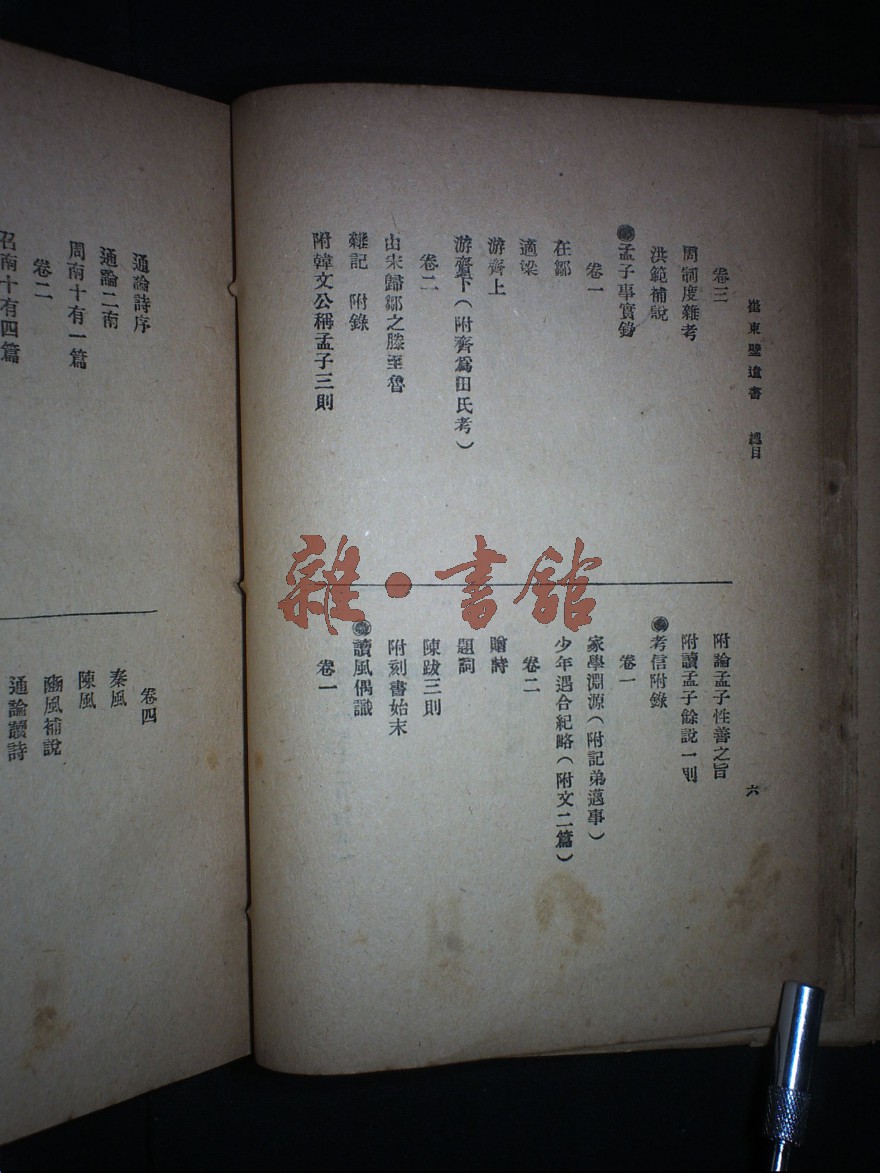 崔東壁遺書 總目
六
卷三
周制度雜考
洪範補說
孟子事實錄
卷一
在鄒
適梁
游齊上
游齊下(附齊爲田氏考)
卷二
由宋歸鄒之滕至魯
雜記 附錄
附韓文公稱孟子三則
附論孟子性善之旨
附讀孟子餘說一則
考信附錄
卷一
家學淵源(附記弟邁事)
少年遇合紀略(附文二篇)
卷二
贈詩
題詞
陳跋三則
附刻書始末
讀風偶識
卷一
通論詩序
通論二南
周南十有一篇
卷二
召南十有四篇
卷四
秦風
陳風
豳風補說
通論讀詩
雜·書館